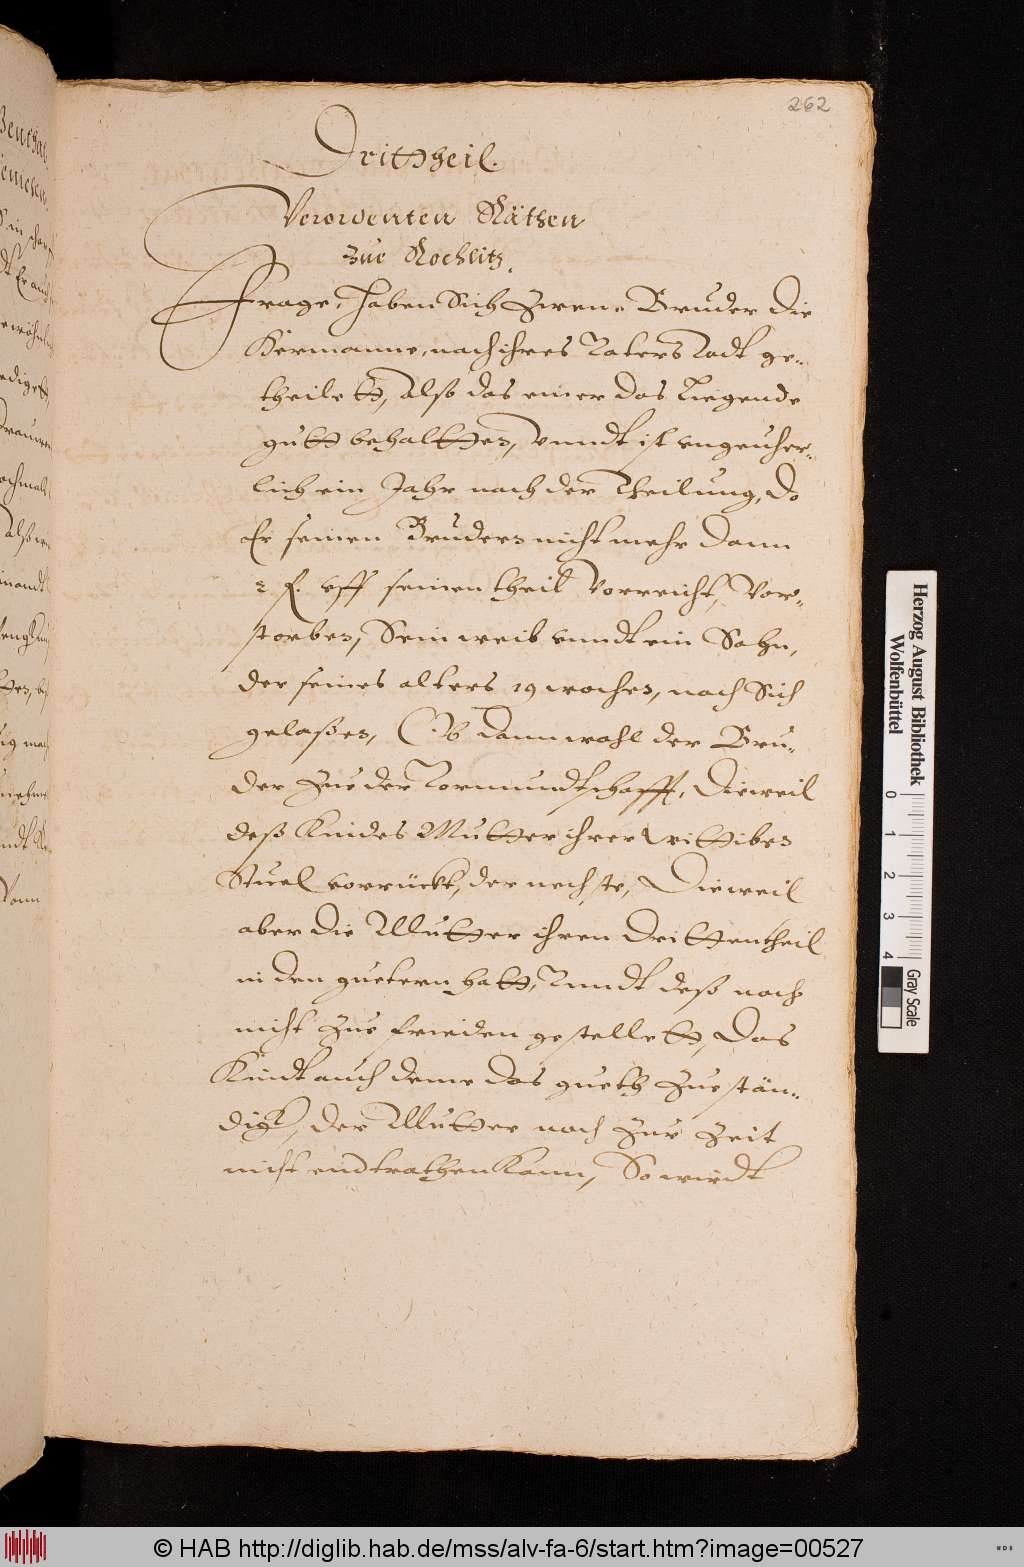 262
Drittheil.
Verordenten Räthen
zue Rochlitz.
Frage. Haben Sich Zwene Bruder die
Hermanne, nach ihres Vaters Todt ge-
theilett, Also das einer das Liegende
gutt behaltten, Vnndt ist vngeuher-
lich ein Jahr nach der Theilung, Do
Er seinen Brudern nicht mehr dann
2 f. vff seinen theil Vorreicht, Vor-
storben, Sein weib vnndt ein Sohn,
der seines alters 19 wochen, nach Sich
gelaßen, Ob dann wohl der Bru-
der Zue der Vormundtschafft, Dieweil
deß Kindes Mutter ihren Wittiben
Stuel vorrückt, der nechste, Dieweil
aber die Mutter ihren Drittentheil
in den guetern hatt, Vnndt deß noch
nicht Zue frieden gestellett, Das
Kindt auch deme das gueth Zuestän-
digk, der Mutter noch Zur Zeit
nicht endtrathen kann, So wirdt
Herzog August Bibliothek
Wolfenbüttel
0 1 2 3 4
Gray Scale
© HAB http://diglib.hab.de/mss/alv-fa-6/start.htm?image=00527